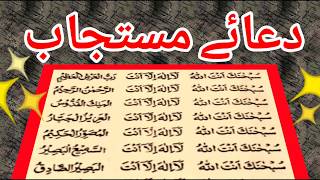 دعائے مستجاب
سُبْحٰنَكَ اَنْتَ اللهُ لَآ اِلٰهَ اِلَّا اَنْتَ رَبُّ الْعَرْشِ الْعَظِيْمِ
سُبْحٰنَكَ اَنْتَ اللهُ لَآ اِلٰهَ اِلَّا اَنْتَ الرَّحْمٰنُ الرَّحِيْمُ
سُبْحٰنَكَ اَنْتَ اللهُ لَآ اِلٰهَ اِلَّا اَنْتَ الْمَلِكُ الْقُدُّوْسُ
سُبْحٰنَكَ اَنْتَ اللهُ لَآ اِلٰهَ اِلَّا اَنْتَ الْعَزِيْزُ الْجَبَّارُ
سُبْحٰنَكَ اَنْتَ اللهُ لَآ اِلٰهَ اِلَّا اَنْتَ الْحَكِيْمُ
سُبْحٰنَكَ اَنْتَ اللهُ لَآ اِلٰهَ اِلَّا اَنْتَ السَّمِيْعُ الْبَصِيْرُ
سُبْحٰنَكَ اَنْتَ اللهُ لَآ اِلٰهَ اِلَّا اَنْتَ الْبَصِيْرُ الصَّادِقُ